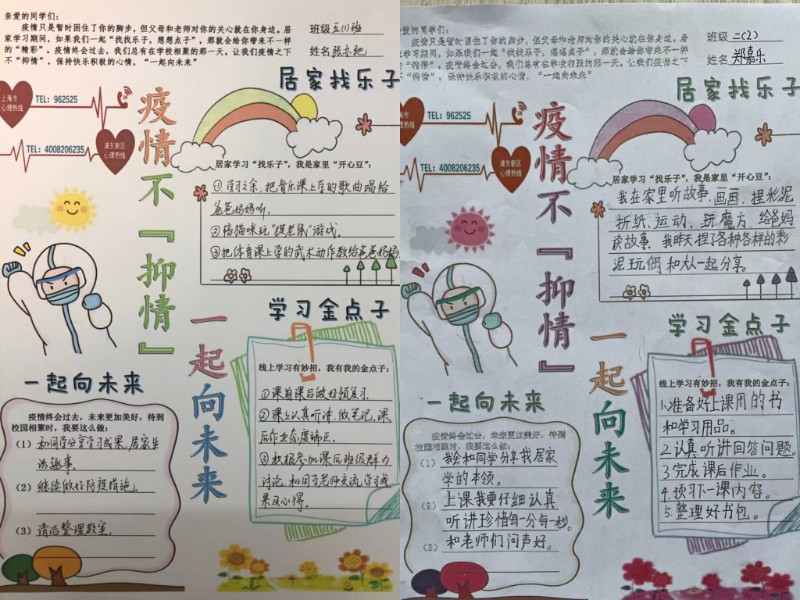 亲爱的同学们:
疫情只是暂时困住了你的脚步,但父母和老师对你的关心就在你身边。居
家学习期间,如果我们一起“找找乐子,想想点子”,那就会给你带来不一样
的“精彩”。疫情终会过去,我们总有在学校相聚的那一天。让我们疫情之下
不“抑情”,保持快乐积极的心情,“一起向未来”
班级 五(1)班
姓名
居家找乐子
上海市
心理热线
TEL: 962525
TEL: 4008206235
浦东新区
心理热线
疫情不『抑情』
一起向未来
居家学习“找乐子”,我是家里“开心豆”:
①学习之余,把音乐课上学的歌曲唱给
爸爸妈妈听。
②陪猫咪玩“捉老鼠”游戏。
③把体育课上学的武术动作教给爸爸妈妈
学习金点子
线上学习有妙招,我有我的金点子:
①课前课后做好预复习
②课上认真听讲,做笔记,课
后作业态度端正。
③积极参加课后班级群力
讨论,和同学老师交流学习成
果及心得。
一起向未来
疫情终会过去,未来更加美好,待到
校园相聚时,我要这么做:
(1)和同学分享学习成果,居家生
活趣事。
(2)继续做好防疫措施。
(3)清洁整理教室。
亲爱的同学们:
疫情只是暂时困住了你的脚步,但父母和老师对你的关心就在你身边。居
家学习期间,如果我们一起“找找乐子,想想点子”,那就会给你带来不一样
的“精彩”。疫情终会过去,我们总有在学校相聚的那一天。让我们疫情之下
不“抑情”,保持快乐积极的心情,“一起向未来”
班级 二(2)
姓名 郑嘉乐
居家找乐子
TEL: 962525
TEL: 4008206235
浦东新区
心理热线
疫情不『抑情』
一起向未来
居家学习“找乐子”,我是家里“开心豆”:
我在家里听故事、画画、捏彩泥
折纸、运动、玩魔方、给爸妈
读故事、我昨天捏了各种各样的彩
泥玩偶和大人一起分享。
学习金点子
线上学习有妙招,我有我的金点子:
1.准备好上课用的书
和学习用品。
2.认真听讲回答问题。
3.完成课后作业。
4.预习下一课内容。
5.整理好书包。
一起向未来
疫情终会过去,未来更加美好,待到
校园相聚时,我要这么做:
(1)我会和同学分享我居家
学的本领。
(2)上课我要仔细认真
听讲珍惜每一分每一秒。
(3)和老师们问声好。